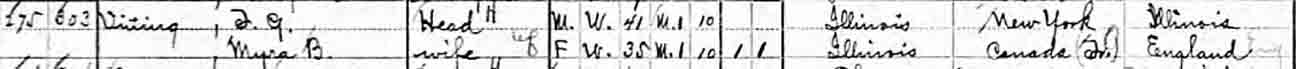 475 603 Viting, F. G. Head M. W. 41 M.1 10 Illinois New York Illinois
Myra B. wife F W. 35 M.1 10 1 1 Illinois Canada England